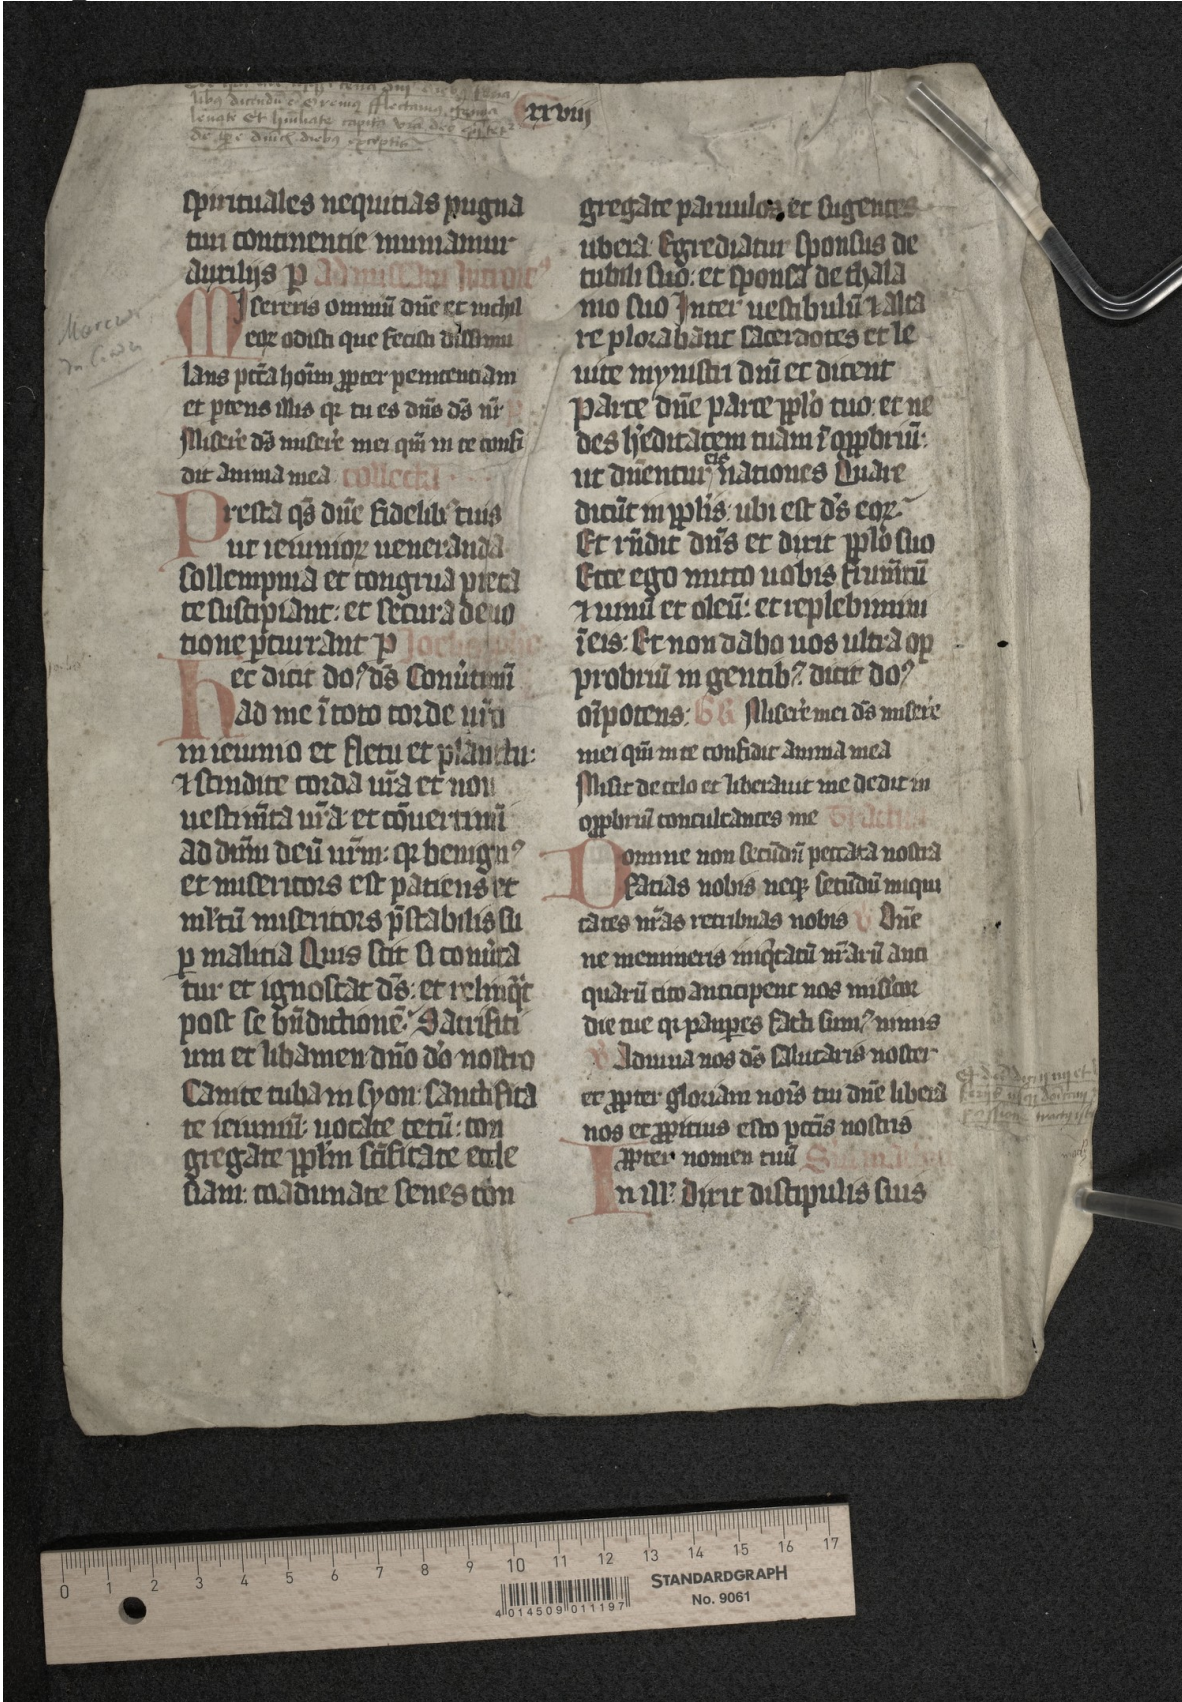 libꝫ dicendū ē Oremus fflectamus genua
leuate Et hūiliate capita vr̄a deo
exceptis
xxviii
spirituales nequitias pugna
turi continentie muniamur
auxilijs P Ad missam Introitꝰ
Misereris omniū dn̄e et nichil
eoꝝ odisti que fecisti dissimu
lans pcc̄a hoīm ꝓpter penitentiam
et ꝑcens illis qꝛ tu es dn̄s ds̄ nr̄
Misere ds̄ misere mei qm̄ in te confi
dit anima mea collecta
Presta qs̄ dn̄e fidelibꝰ tuis
ut ieiunioꝝ ueneranda
sollempnia et congrua pieta
te suscipiant: et secura deuo
tione ꝑcurrant P
Hec dicit doꝰ ds̄ Conūtimī
ad me ī toto corde ur̄o
in ieiunio et fletu et planctu:
⁊ scindite corda ur̄a et non
uestim̄ta ur̄a: et cōuertimī
ad dn̄m deū ur̄m: qꝛ benignꝰ
et misericors est patiens et
ml̄tū misericors p̄stabilis su
ꝑ malitia Quis scit si conūta
tur et ignoscat ds̄: et relinq̄t
post se bn̄dictionē: Sacrifici
um et libamen dn̄o dō nostro
Canite tuba in syon: sanctifica
te ieiuniū: uocate cetū: con
gregate ppl̄m sc̄ificate eccle
siam: coadunate senes con
gregate paruulos et sugentes
ubera: Egrediatur sponsus de
cubili suo: et sponsa de thala
mo suo Inter uestibulū ⁊ alta
re plorabant sacerdotes et le
uite mynistri dn̄i et dicent
Parce dn̄e parce ppl̄o tuo: et ne
des h̓editatem tuam ī opꝓbriū:
ut dn̄entur eis nationes Quare
dicūt in ppl̄is: ubi est ds̄ eoꝝ
Et rn̄dit dn̄s et dixit ppl̄o suo
Ecce ego mitto uobis frum̄tū
⁊ uinū et oleū: et replebimini
ī eis: Et non dabo uos ultra op
probriū in gentibꝰ: dicit doꝰ
oīpotens: GR Misere mei ds̄ misere
mei qm̄ in te confidit anima mea
Misit de celo et liberauit me dedit in
opꝓbriū conculcantes me Tractus
Domine non secūdū peccata nostra
facias nobis neqꝫ secūdū iniqui
tates nr̄as retribuas nobis V Dn̄e
ne memineris iniq̄tatū nr̄arū anti
quarū cito anticipent nos mis̄cor
die tue qꝛ paupes facti sumꝰ nimis
V Adiuua nos ds̄ salutaris noster
et ꝓpter gloriam nois̄ tui dn̄e libera
nos et ꝓpitius esto pcc̄is nostris
ꝓpter nomen tuū
In ill̓ Dixit discipulis suis
0 1 2 3 4 5 6 7 8 9 10 11 12 13 14 15 16 17
STANDARDGRAPH
No. 9061
4 014509 011197